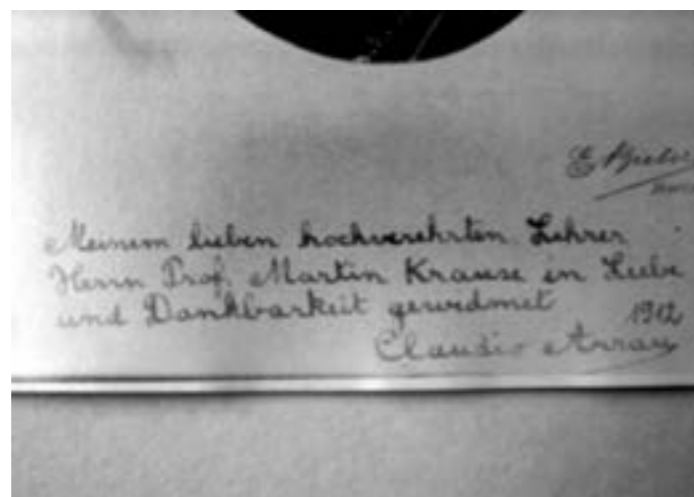 Meinem lieben hochverehrten Lehrer
Herrn Prof. Martin Krause in Liebe
und Dankbarkeit gewidmet
1912
Claudio Arrau